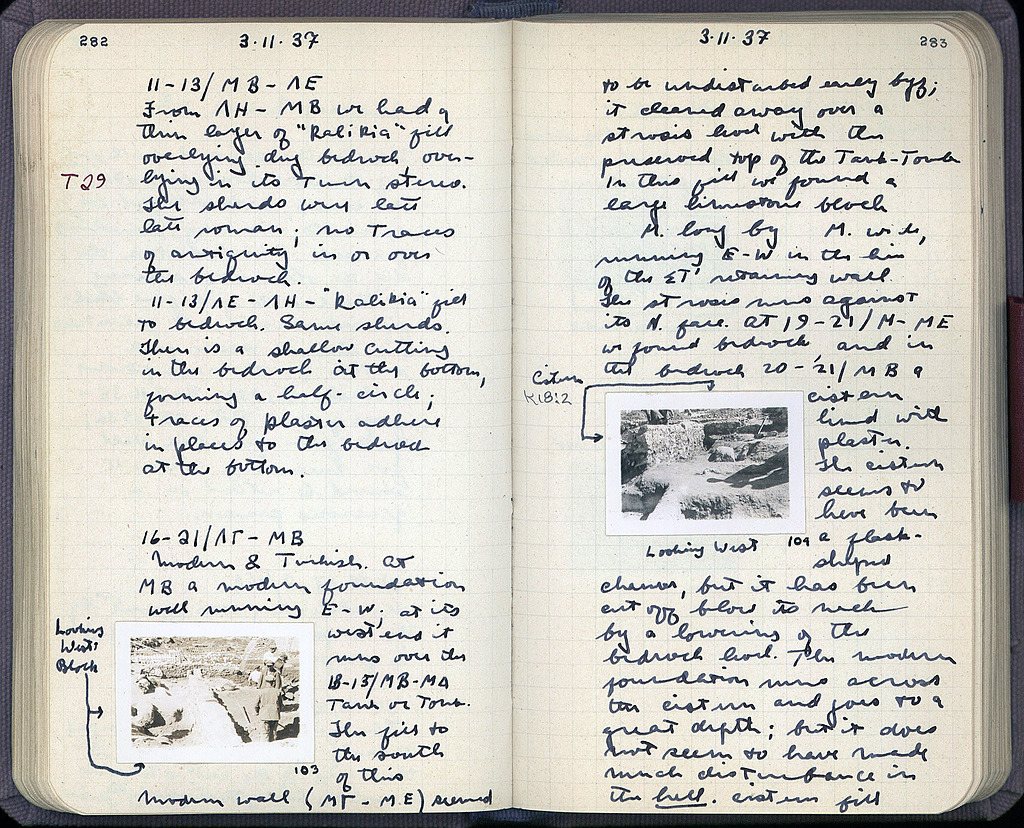 282
3·11·37
11-13/MB-ΛE
From ΛH-MB we had a
thin layer of "Kalikia" fill
overlying dug bedrock, over-
lying in its turn stereo.
T29
The sherds were late
late roman; no traces
of antiquity in or over
the bedrock.
11-13/ΛE-ΛH-"Kalikia" fill
to bedrock. Same sherds.
There is a shallow cutting
in the bedrock at the bottom,
forming a half-circle;
traces of plaster adhere
in places to the bedrock
at the bottom.
16-21/ΛΓ-MB
Modern & Turkish. At
MB a modern foundation
wall running E-W, at its
west end it
runs over the
MB-MΔ
Tank or Tomb.
The fill to
the south
of this
Looking
West:
Block
103
modern wall (MΓ-ME) seemed
3·11·37
283
to be undisturbed early byz;
it cleared away over a
strosis level with the
preserved top of the Tank-Tomb
In this fill we found a
large limestone block
M. long by M. wide,
running E-W in the line
of the ΣT' retaining wall.
The strosis runs against
its N. face. At 19-21/M-ME
we found bedrock, and in
the bedrock 20-21/MB a
Cistern
K18:2
cistern
lined with
plaster.
The cistern
seems to
have been
a flask-
shaped
Looking West
104
chamber, but it has been
cut off below its neck
by a lowering of the
bedrock level. The modern
foundation runs across
the cistern and goes to a
great depth; but it does
not seem to have made
much disturbance in
the fill. cistern fill